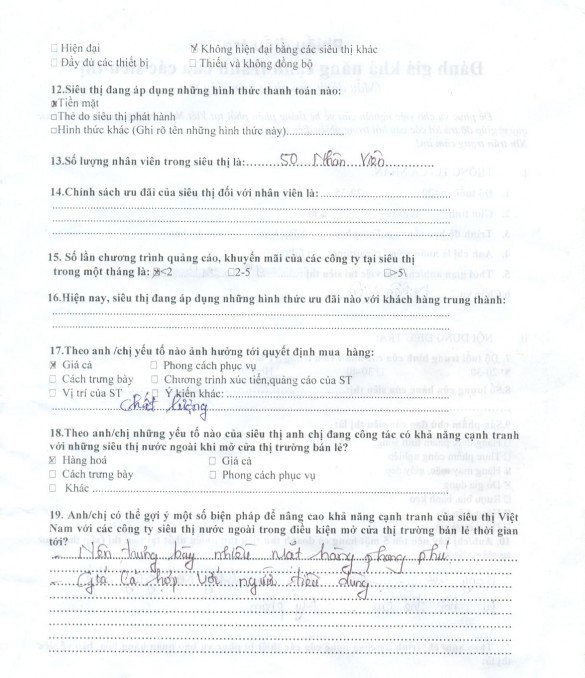 □ Hiện đại ☒ Không hiện đại bằng các siêu thị khác
□ Đầy đủ các thiết bị □ Thiếu và không đồng bộ
12.Siêu thị đang áp dụng những hình thức thanh toán nào:
☒Tiền mặt
□Thẻ do siêu thị phát hành
□Hình thức khác (Ghi rõ tên những hình thức này)..................
13.Số lượng nhân viên trong siêu thị là:........50 Nhân Viên............
14.Chính sách ưu đãi của siêu thị đối với nhân viên là:................................
15. Số lần chương trình quảng cáo, khuyến mãi của các công ty tại siêu thị
trong một tháng là: ☒<2 □2-5 □>5\
16.Hiện nay, siêu thị đang áp dụng những hình thức ưu đãi nào với khách hàng trung thành:
17.Theo anh /chị yếu tố nào ảnh hưởng tới quyết định mua hàng:
☒ Giá cả □ Phong cách phục vụ
□ Cách trưng bày □ Chương trình xúc tiến,quảng cáo của ST
□ Vị trí của ST □ Ý kiến khác:................................
chất lượng
18.Theo anh/chị những yếu tố nào của siêu thị anh chị đang công tác có khả năng cạnh tranh
với những siêu thị nước ngoài khi mở cửa thị trường bán lẻ?
☒ Hàng hoá □ Giá cả
□ Cách trưng bày □ Phong cách phục vụ
□ Khác ................................
19. Anh/chị có thể gợi ý một số biện pháp để nâng cao khả năng cạnh tranh của siêu thị Việt
Nam với các công ty siêu thị nước ngoài trong điều kiện mở cửa thị trường bán lẻ thời gian
tới?
Nên trưng bày nhiều mặt hàng phong phú,
Giá cả hợp với người tiêu dùng